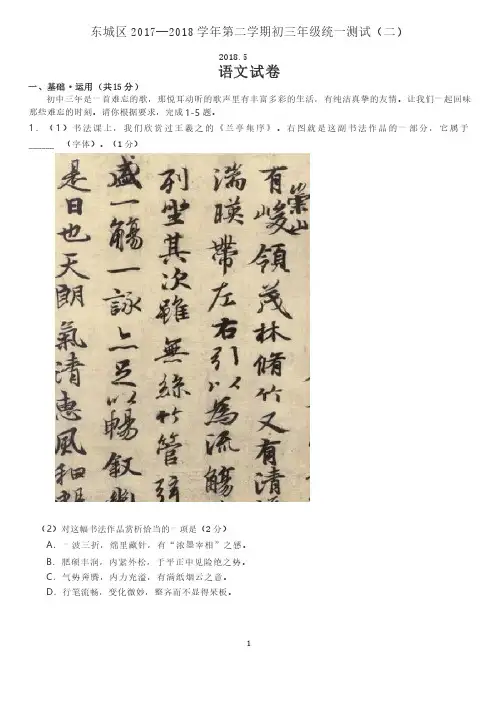 东城区 2017—2018 学年第二学期初三年级统一测试（二）
2018.5
语文试卷
一、基础·运用（共15分）
初中三年是一首难忘的歌，那悦耳动听的歌声里有丰富多彩的生活，有纯洁真挚的友情。让我们一起回味
那些难忘的时刻。请你根据要求，完成 1-5 题。
1．（1）书法课上，我们欣赏过王羲之的《兰亭集序》。右图就是这副书法作品的一部分，它属于
_____ （字体）。（1分）
崇山
有峻領茂林脩竹又有清
湍暎帶左右引以為流觴
列坐其次雖無絲竹管弦
盛一觴一詠亦足以暢敘幽
是日也天朗氣清惠風和暢
（2）对这幅书法作品赏析恰当的一项是（2分）
A．一波三折，绵里藏针，有“浓墨宰相”之感。
B．肥硕丰润，内紧外松，于平正中见险绝之势。
C．气势奔腾，内力充溢，有满纸烟云之意。
D．行笔流畅，变化微妙，整齐而不显得呆板。
1